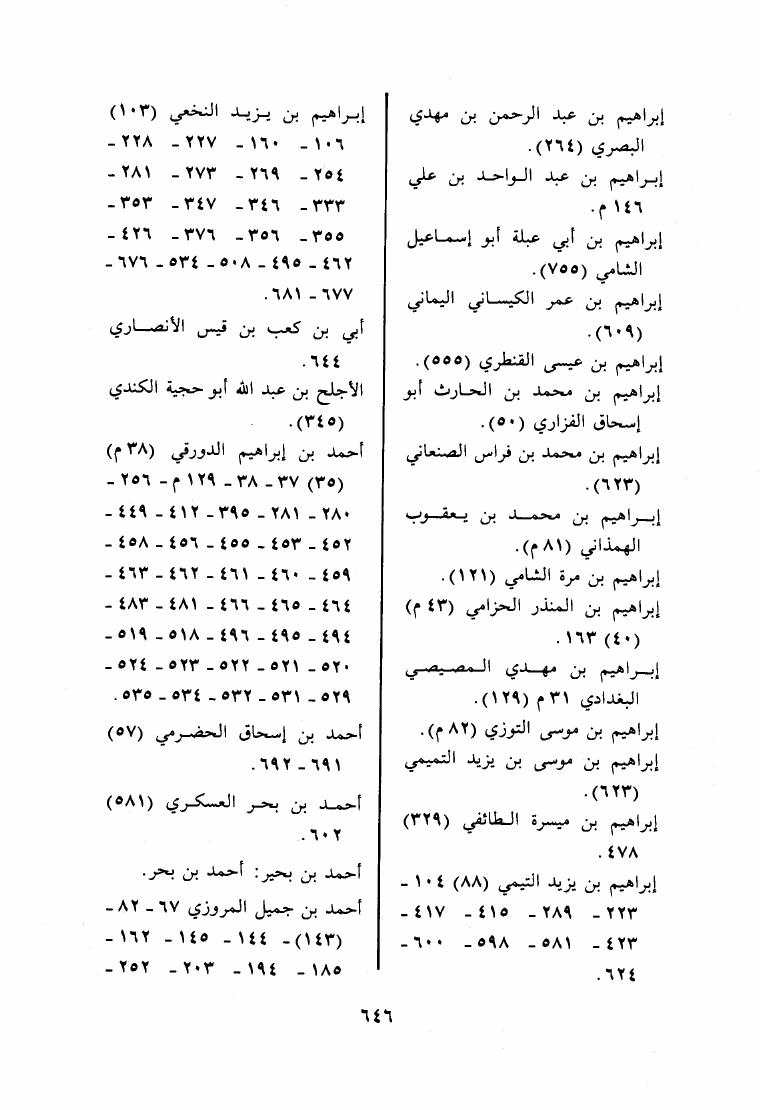 إبراهيم بن عبد الرحمن بن مهدي
البصري (٢٦٤).
إبراهيم بن عبد الواحد بن علي
١٤٦ م.
إبراهيم بن أبي عبلة أبو إسماعيل
الشامي (٧٥٥).
إبراهيم بن عمر الكيساني اليماني
(٦٠٩).
إبراهيم بن عيسى القنطري (٥٥٥).
إبراهيم بن محمد بن الحارث أبو
إسحاق الفزاري (٥٠).
إبراهيم بن محمد بن فراس الصنعاني
(٦٢٣).
إبراهيم بن محمد بن يعقوب
الهمذاني (٨١ م).
إبراهيم بن مرة الشامي (١٢١).
إبراهيم بن المنذر الحزامي (٤٣ م)
(٤٠) ١٦٣.
إبراهيم بن مهدي المصيصي
البغدادي ٣١ م (١٢٩).
إبراهيم بن موسى التوزي (٨٢ م).
إبراهيم بن موسى بن يزيد التميمي
(٦٢٣).
إبراهيم بن ميسرة الطائفي (٣٢٩)
٤٧٨.
إبراهيم بن يزيد التيمي (٨٨) ١٠٤ -
٢٢٣ - ٢٨٩ - ٤١٥ - ٤١٧ -
٤٢٣ - ٥٨١ - ٥٩٨ - ٦٠٠ -
٦٢٤.
إبراهيم بن يزيد النخعي (١٠٣)
١٠٦ - ١٦٠ - ٢٢٧ - ٢٢٨ -
٢٥٤ - ٢٦٩ - ٢٧٣ - ٢٨١ -
٣٣٣ - ٣٤٦ - ٣٤٧ - ٣٥٣ -
٣٥٥ - ٣٥٦ - ٣٧٦ - ٤٢٦ -
٤٦٢ - ٤٩٥ - ٥٠٨ - ٥٣٤ - ٦٧٦ -
٦٧٧ - ٦٨١.
أبي بن كعب بن قيس الأنصاري
٦٤٤.
الأجلح بن عبد الله أبو حجية الكندي
(٣٤٥).
أحمد بن إبراهيم الدورقي (٣٨ م)
(٣٥) ٣٧ - ٣٨ - ١٢٩ م - ٢٥٦ -
٢٨٠ - ٢٨١ - ٣٩٥ - ٤١٢ - ٤٤٩ -
٤٥٢ - ٤٥٣ - ٤٥٥ - ٤٥٦ - ٤٥٨ -
٤٥٩ - ٤٦٠ - ٤٦١ - ٤٦٢ - ٤٦٣ -
٤٦٤ - ٤٦٥ - ٤٦٦ - ٤٨١ - ٤٨٣ -
٤٩٤ - ٤٩٥ - ٤٩٦ - ٥١٨ - ٥١٩ -
٥٢٠ - ٥٢١ - ٥٢٢ - ٥٢٣ - ٥٢٤ -
٥٢٩ - ٥٣١ - ٥٣٢ - ٥٣٤ - ٥٣٥.
أحمد بن إسحاق الحضرمي (٥٧)
٦٩١ - ٦٩٢.
أحمد بن بحر العسكري (٥٨١)
٦٠٢.
أحمد بن بحير: أحمد بن بحر.
أحمد بن جميل المروزي ٦٧ - ٨٢ -
(١٤٣) - ١٤٤ - ١٤٥ - ١٦٢ -
١٨٥ - ١٩٤ - ٢٠٣ - ٢٥٢ -
٦٤٦